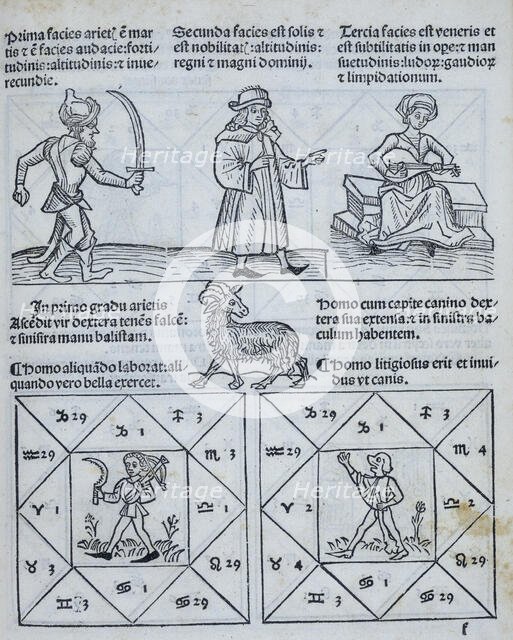 Prima facies arietꝭ ē mar
tis ⁊ ē facies audacie: forti
tudinis: altitudinis ⁊ inue
recundie.
Secunda facies est solis ⁊
est nobilitatꝭ: altitudinis:
regni ⁊ magni dominij.
Tercia facies est veneris et
est subtilitatis in ope: ⁊ man
suetudinis: ludoꝝ: gaudioꝝ
⁊ limpidationum.
In primo gradu arietis
Ascēdit vir dextera tenēs falcē:
⁊ sinistra manu balistam.
Homo cum capite canino dex
tera sua extensa: ⁊ in sinistra ba
culum habentem.
¶ Homo aliquādo laborat: ali
quando vero bella exercet.
¶ Homo litigiosus erit et inui
dus vt canis.
♑ 29 ♑ 1 ♐ 3
♒ 29 ♏ 3
♈ 1 ♎ 1
♉ 3 ♌ 29
♊ 3 ♋ 1 ♋ 29
♑ 29 ♑ 1 ♐ 3
♒ 29 ♏ 4
♈ 2 ♎ 2
♉ 4 ♌ 29
♊ 3 ♋ 1 ♋ 29
f
Heritage
Heritage
Heritage
Heritage
Heritage
Heritage